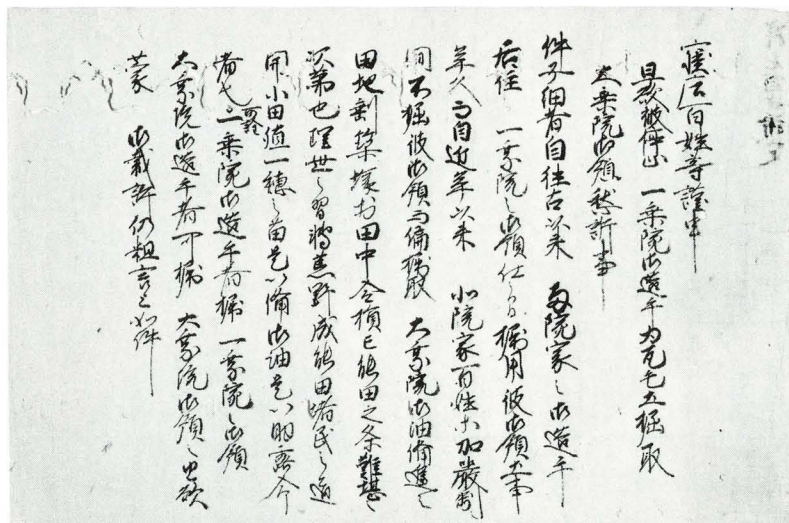 窪庄百姓等謹申
早欲被停止一乗院御造手為瓦毛土掘取
大乗院御領愁訴事
件子細者自往古以来両院家之御造手
居住一乗院之御領仕之間掘用彼御領土事
年久而自近年以来 小院家百姓等加厳制
間不掘彼御領而偏掘取 大乗院御油備進之
田地剰築塚於田中令損亡能田之条難堪之
次第也理世之習将荒野成能田諸民之道
開小田値一穂之苗是以備御油是以助露命
者也而一乗院御造手者掘一乗院之御領
大乗院御造手者可掘 大乗院御領之由欲
蒙 御裁許仍粗言上如件